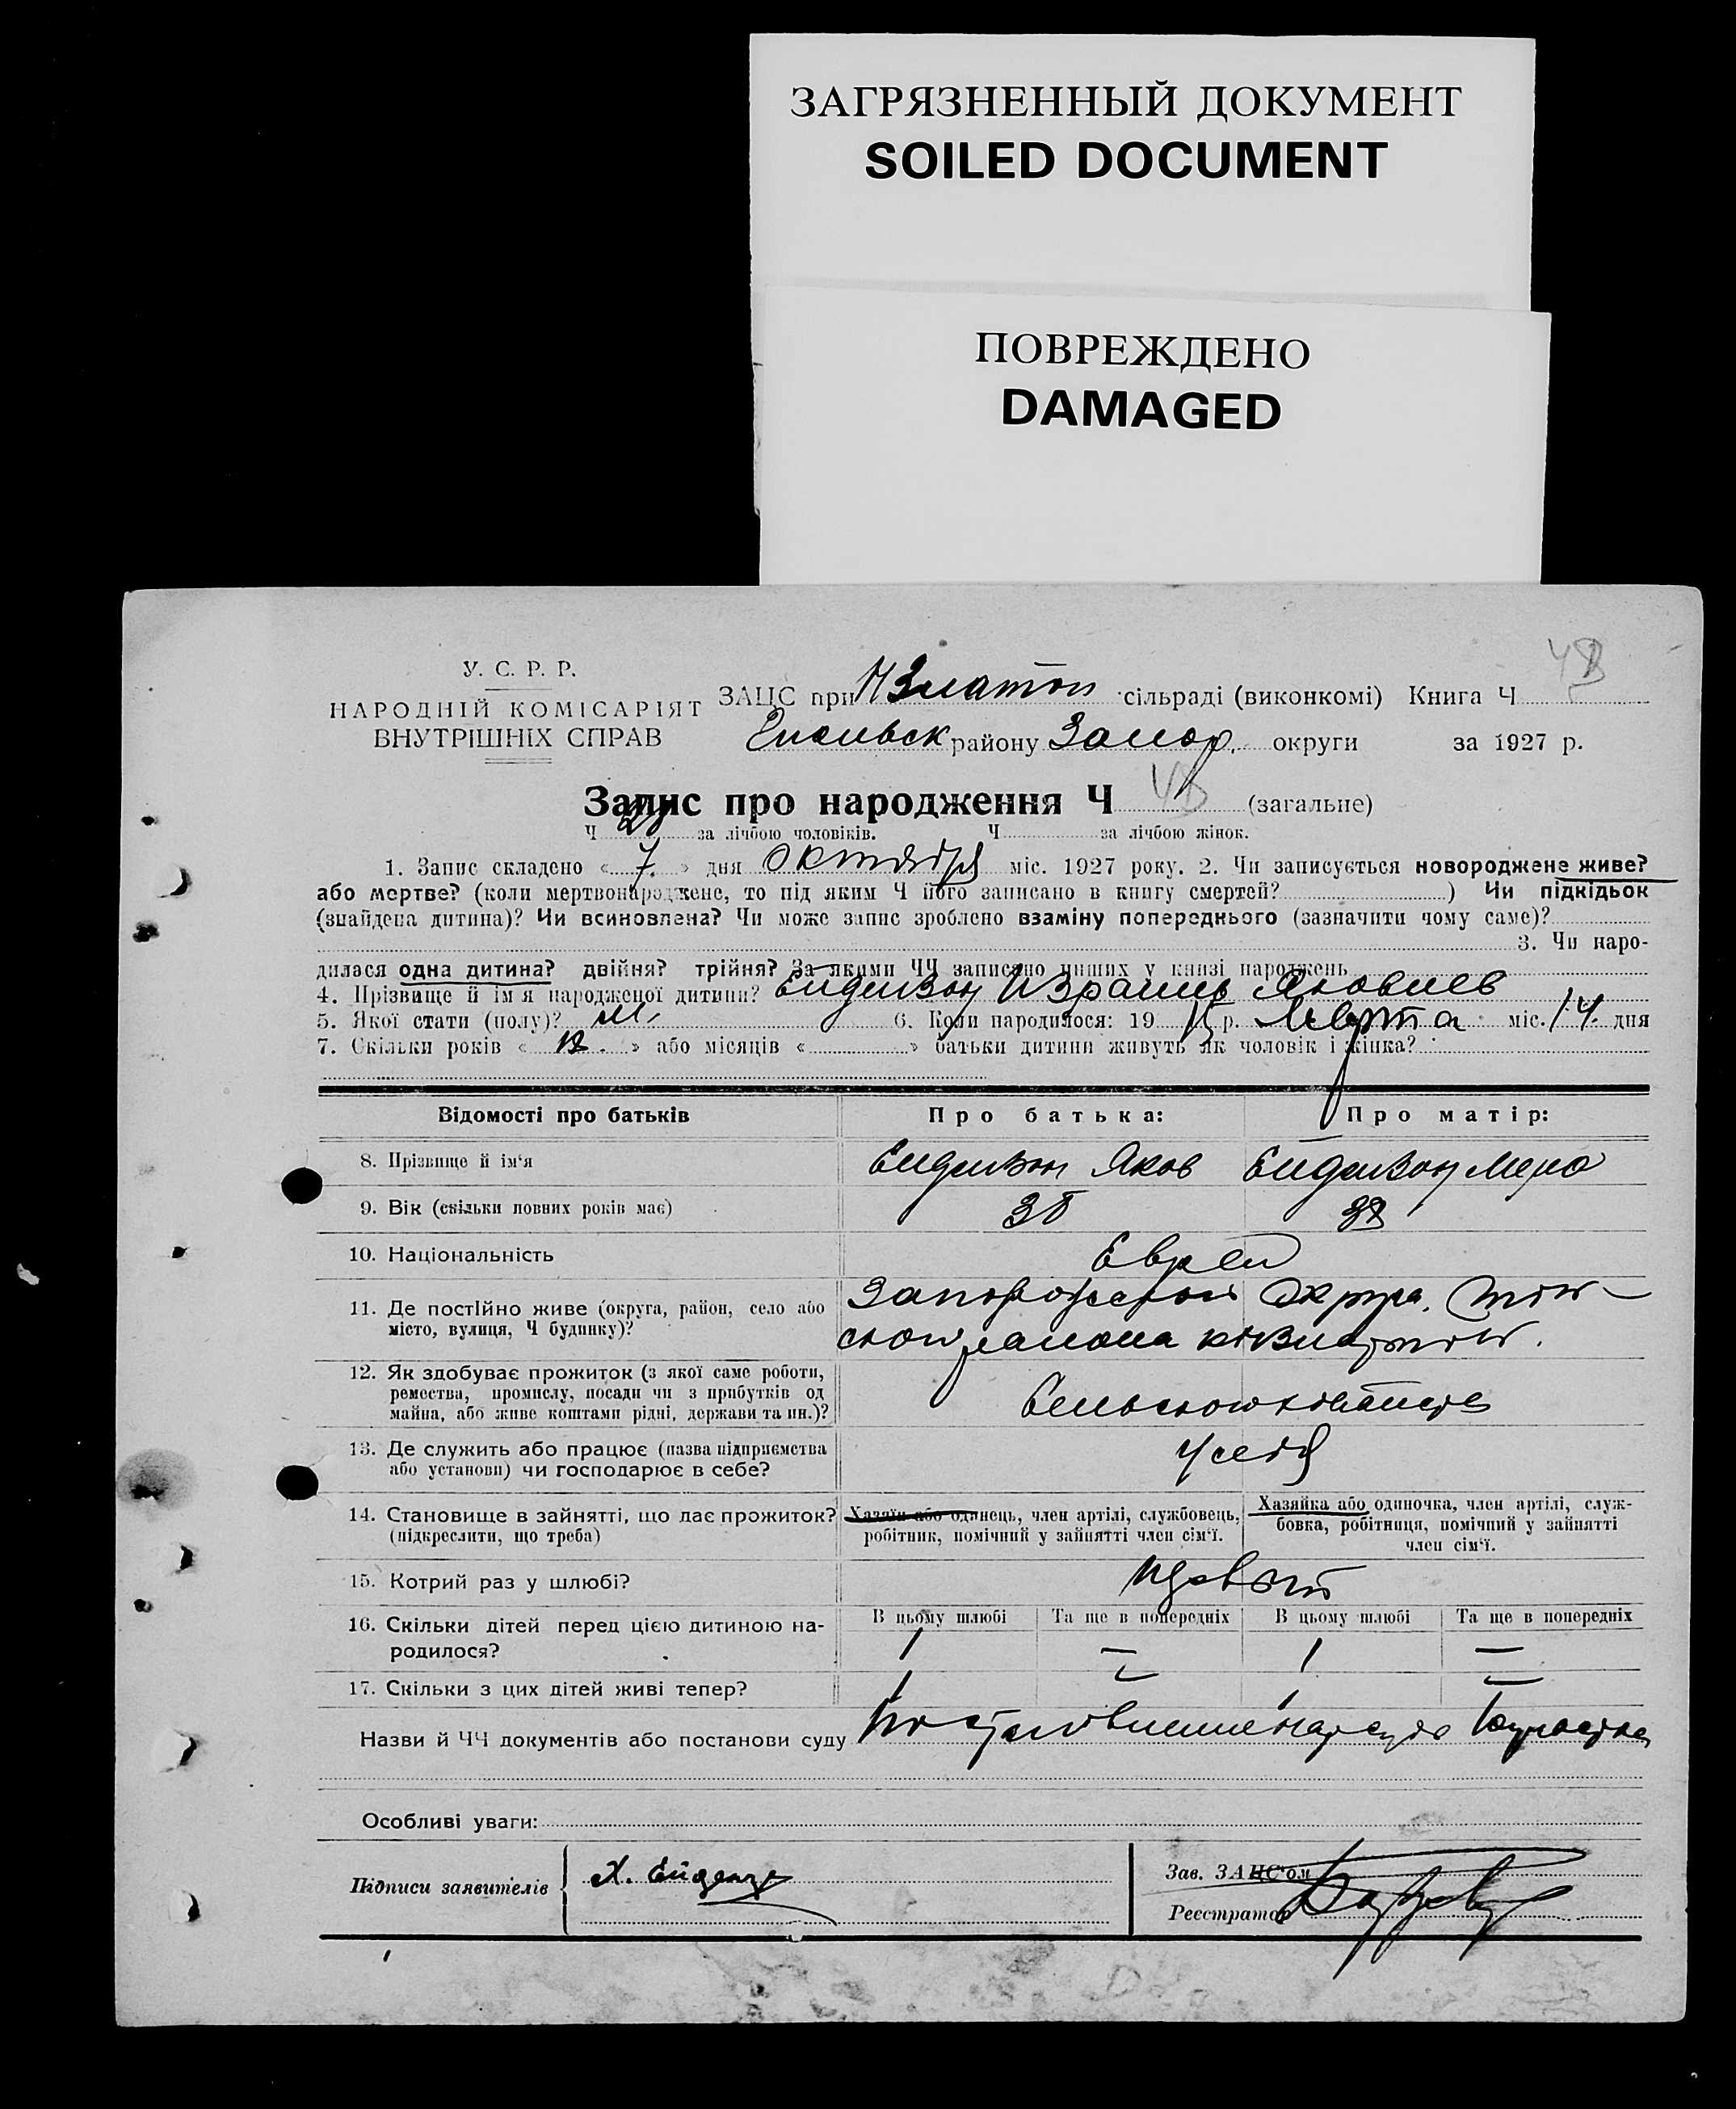 ЗАГРЯЗНЕННЫЙ ДОКУМЕНТ
SOILED DOCUMENT
ПОВРЕЖДЕНО
DAMAGED
У. С. Р. Р.
НАРОДНІЙ КОМІСАРІЯТ
ВНУТРІШНІХ СПРАВ
ЗАЦС при Н Златоп сільраді (виконкомі) Книга Ч
району Запор. округи за 1927 р.
Запис про народження Ч 48 (загальне)
Ч за лічбою чоловіків. Ч за лічбою жінок.
1. Запис складено « 7. » дня октября міс. 1927 року. 2. Чи записується новороджене живе?
або мертве? (коли мертвонароджене, то під яким Ч його записано в книгу смертей? ) Чи підкідьок
(знайдена дитина)? Чи всиновлена? Чи може запис зроблено взаміну попереднього (зазначити чому саме)?
3. Чи наро-
дилася одна дитина? двійня? трійня? За якими ЧЧ записано инших у книзі народжень
4. Прізвище й ім'я народженої дитини? Ейдензон Израиль Яковлев
5. Якої стати (полу)? М. 6. Коли народилося: 19 15 р. Марта міс. 14 дня
7. Скільки років « » або місяців « » батьки дитини живуть як чоловік і жінка?
Відомості про батьків Про батька: Про матір:
8. Прізвище й ім'я Ейдензон Яков Ейдензон Мера
9. Вік (скільки повних років має)
10. Національність Еврей
11. Де постійно живе (округа, район, село або
місто, вулиця, Ч будинку)?
12. Як здобуває прожиток (з якої саме роботи,
ремества, промислу, посади чи з прибутків од
майна, або живе коштами рідні, держави та ин.)?
13. Де служить або працює (назва підприємства
або установи) чи господарює в себе? у себя
14. Становище в зайнятті, що дає прожиток?
(підкреслити, що треба)
Хазяїн або одинець, член артілі, службовець,
робітник, помічний у зайнятті член сім'ї.
Хазяйка або одиночка, член артілі, служ-
бовка, робітниця, помічний у зайнятті
член сім'ї.
15. Котрий раз у шлюбі? первый
16. Скільки дітей перед цією дитиною на-
родилося?
В цьому шлюбі Та ще в попередніх В цьому шлюбі Та ще в попередніх
1 — 1 —
17. Скільки з цих дітей живі тепер? 1 — 1 —
Назви й ЧЧ документів або постанови суду Постановление нарсуда участка
Особливі уваги:
Підписи заявителів Х. Ейденз
Зав. ЗАЦС'ом
Реєстратор